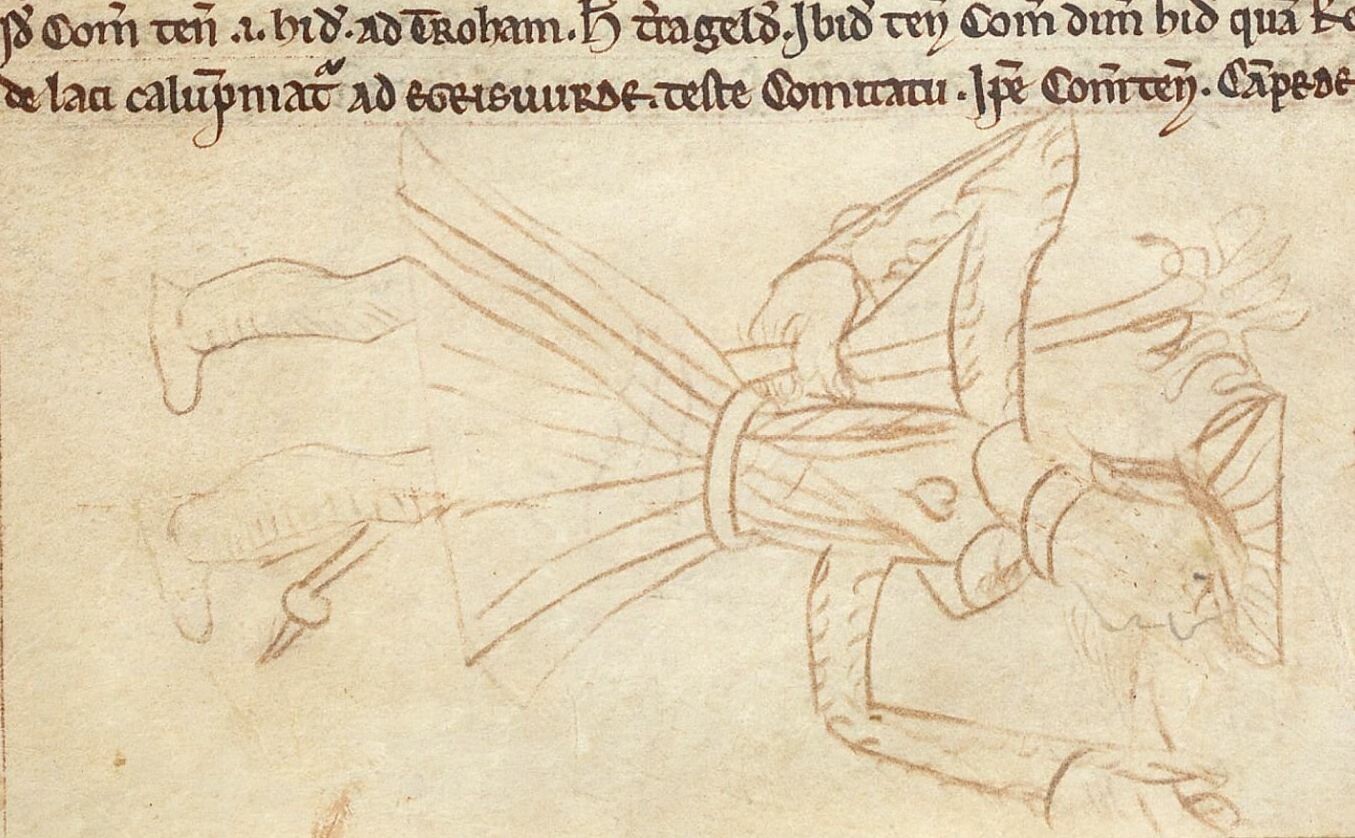 Com̄ ten̄ .i. hid̕. ad TRoham. H̄ t̕ra geld̕. Ibid ten̄ Com̄ dim̄ hid quā
de laci calūpniat᷑ ad EGRISUURDE. teste Comitatu . Ip̄e Com̄ ten̄ .